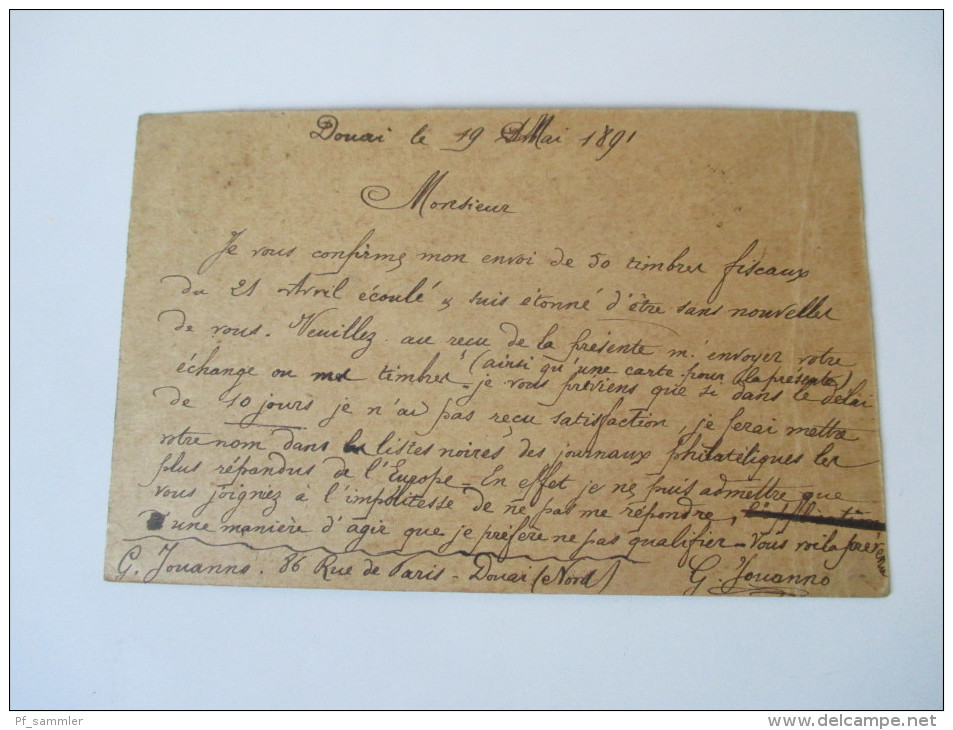 Douai le 19 Mai 1891
Monsieur
Je vous confirme mon envoi de 50 timbres fiscaux
du 21 Avril écoulé & suis étonné d'être sans nouvelles
de vous. Veuillez au reçu de la présente m'envoyer votre
échange ou mes timbres (ainsi qu'une carte pour la présente)
je vous préviens que si dans le délai
de 10 jours je n'ai pas reçu satisfaction, je ferai mettre
votre nom dans les listes noires des journaux philatéliques les
plus répandus de l'Europe - En effet je ne puis admettre que
vous joignez à l'impolitesse de ne pas me répondre,
une manière d'agir que je préfère ne pas qualifier - Vous voilà prévenu
G. Jouanno. 86 Rue de Paris - Douai (Nord) G. Jouanno
Pf_sammler
www.delcampe.net